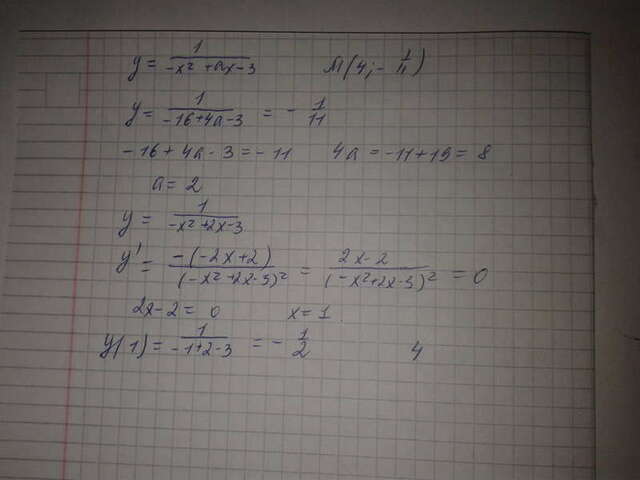 y = 1/(-x² + ax - 3) M(4; -1/11)
y = 1/(-16 + 4a - 3) = -1/11
-16 + 4a - 3 = -11 4a = -11 + 19 = 8
a = 2
y = 1/(-x² + 2x - 3)
y' = -(-2x + 2)/(-x² + 2x - 3)² = (2x - 2)/(-x² + 2x - 3)² = 0
2x - 2 = 0 x = 1
y(1) = 1/(-1 + 2 - 3) = -1/2 4